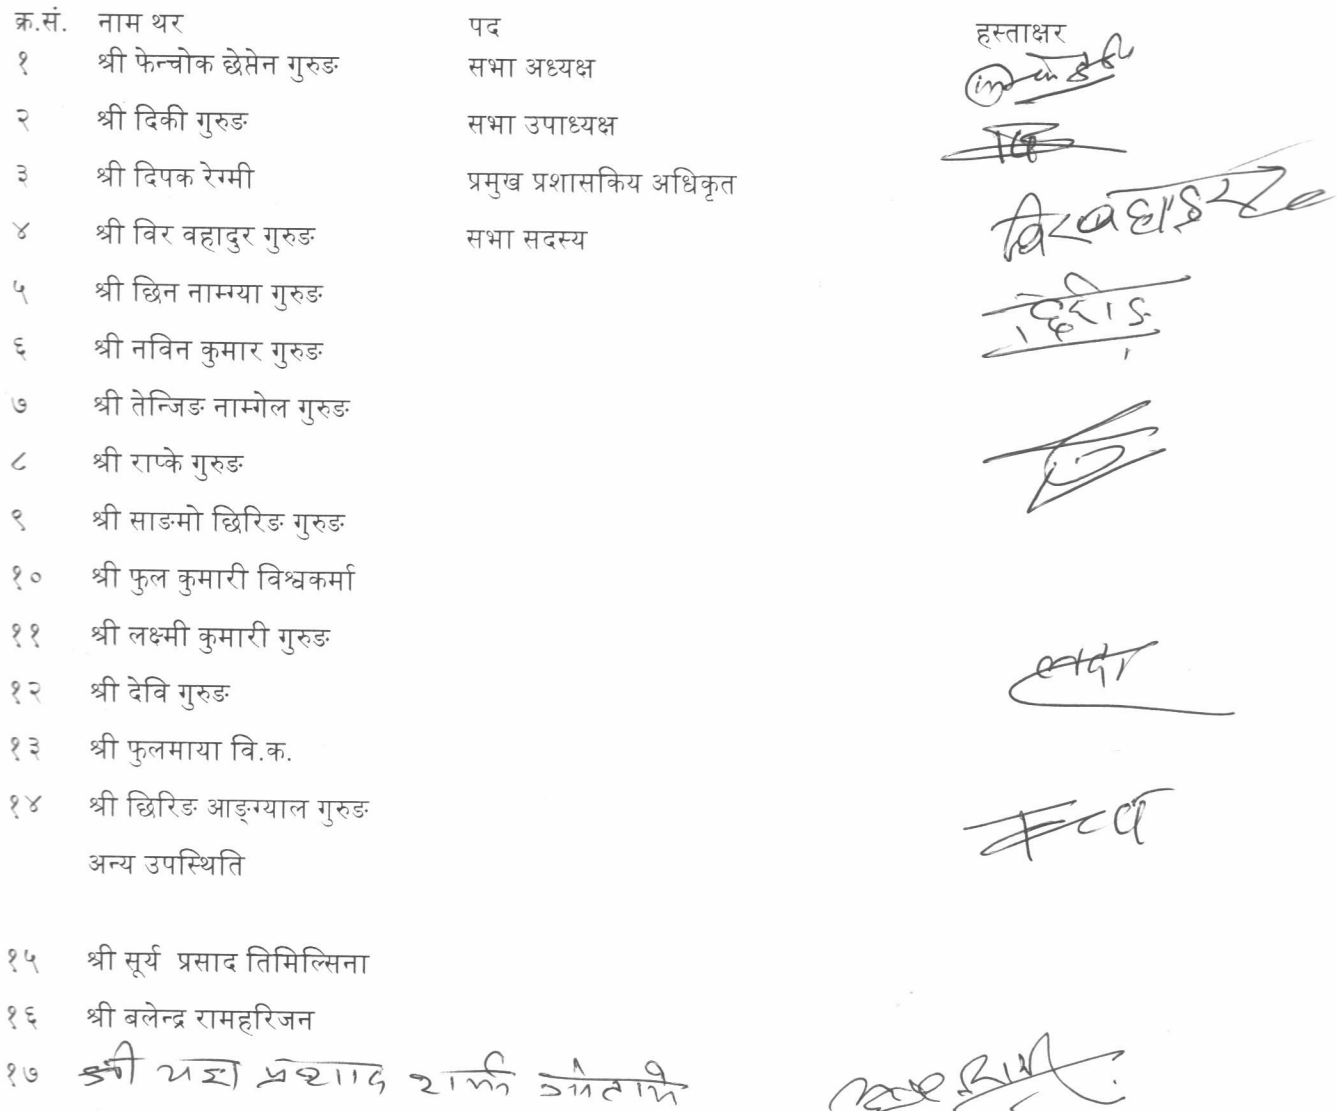 क्र.सं. नाम थर पद हस्ताक्षर
१ श्री फेन्चोक छेप्तेन गुरुङ सभा अध्यक्ष
२ श्री दिकी गुरुङ सभा उपाध्यक्ष
३ श्री दिपक रेग्मी प्रमुख प्रशासकिय अधिकृत
४ श्री विर वहादुर गुरुङ सभा सदस्य
५ श्री छिन नाम्ग्या गुरुङ
६ श्री नविन कुमार गुरुङ
७ श्री तेन्जिङ नाम्गेल गुरुङ
८ श्री राप्के गुरुङ
९ श्री साङमो छिरिङ गुरुङ
१० श्री फुल कुमारी विश्वकर्मा
११ श्री लक्ष्मी कुमारी गुरुङ
१२ श्री देवि गुरुङ
१३ श्री फुलमाया वि.क.
१४ श्री छिरिङ आङ्ग्याल गुरुङ
अन्य उपस्थिति
१५ श्री सूर्य प्रसाद तिमिल्सिना
१६ श्री बलेन्द्र रामहरिजन
१७ श्री प्रसाद शर्मा